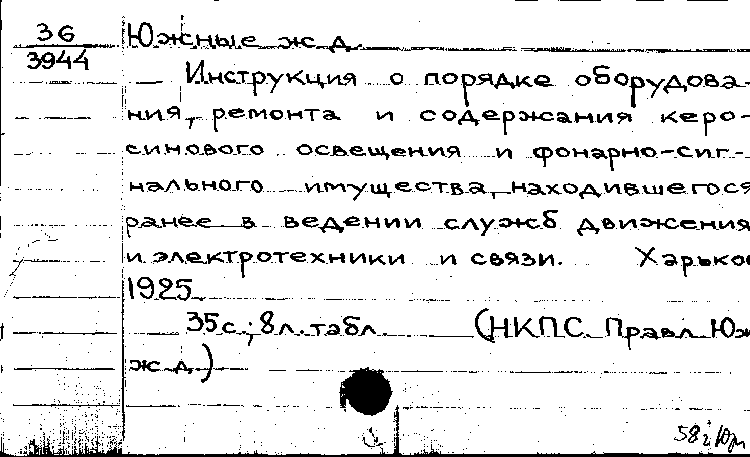 36
3944
Южные ж.д.
Инструкция о порядке оборудова-
ния, ремонта и содержания керо-
синового освещения и фонарно-сиг-
нального имущества, находившегося
ранее в ведении служб движения
и электротехники и связи. Харьков
1925.
35с.; 8л. табл. (НКПС. Правл. Юж
ж.д.)
58г